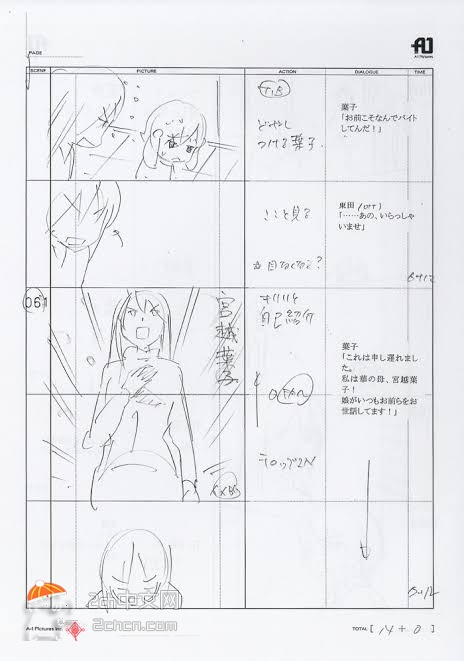 PAGE
A-1 Pictures
SCENE
PICTURE
ACTION
DIALOGUE
TIME
T.B
どやし
つける葉子
葉子
「お前こそなんでバイト
してんだ!」
東田(off)
「……あの、いらっしゃ
いませ」
061
宮越葉子
自己紹介
葉子
「これは申し遅れまし
た。
私は華の母、宮越葉
子!
娘がいつもお前らをお
世話してます!」
テロップIN
2ch中文网
2chcn.com
A-1 Pictures Inc.
TOTAL [ 14 + 0 ]